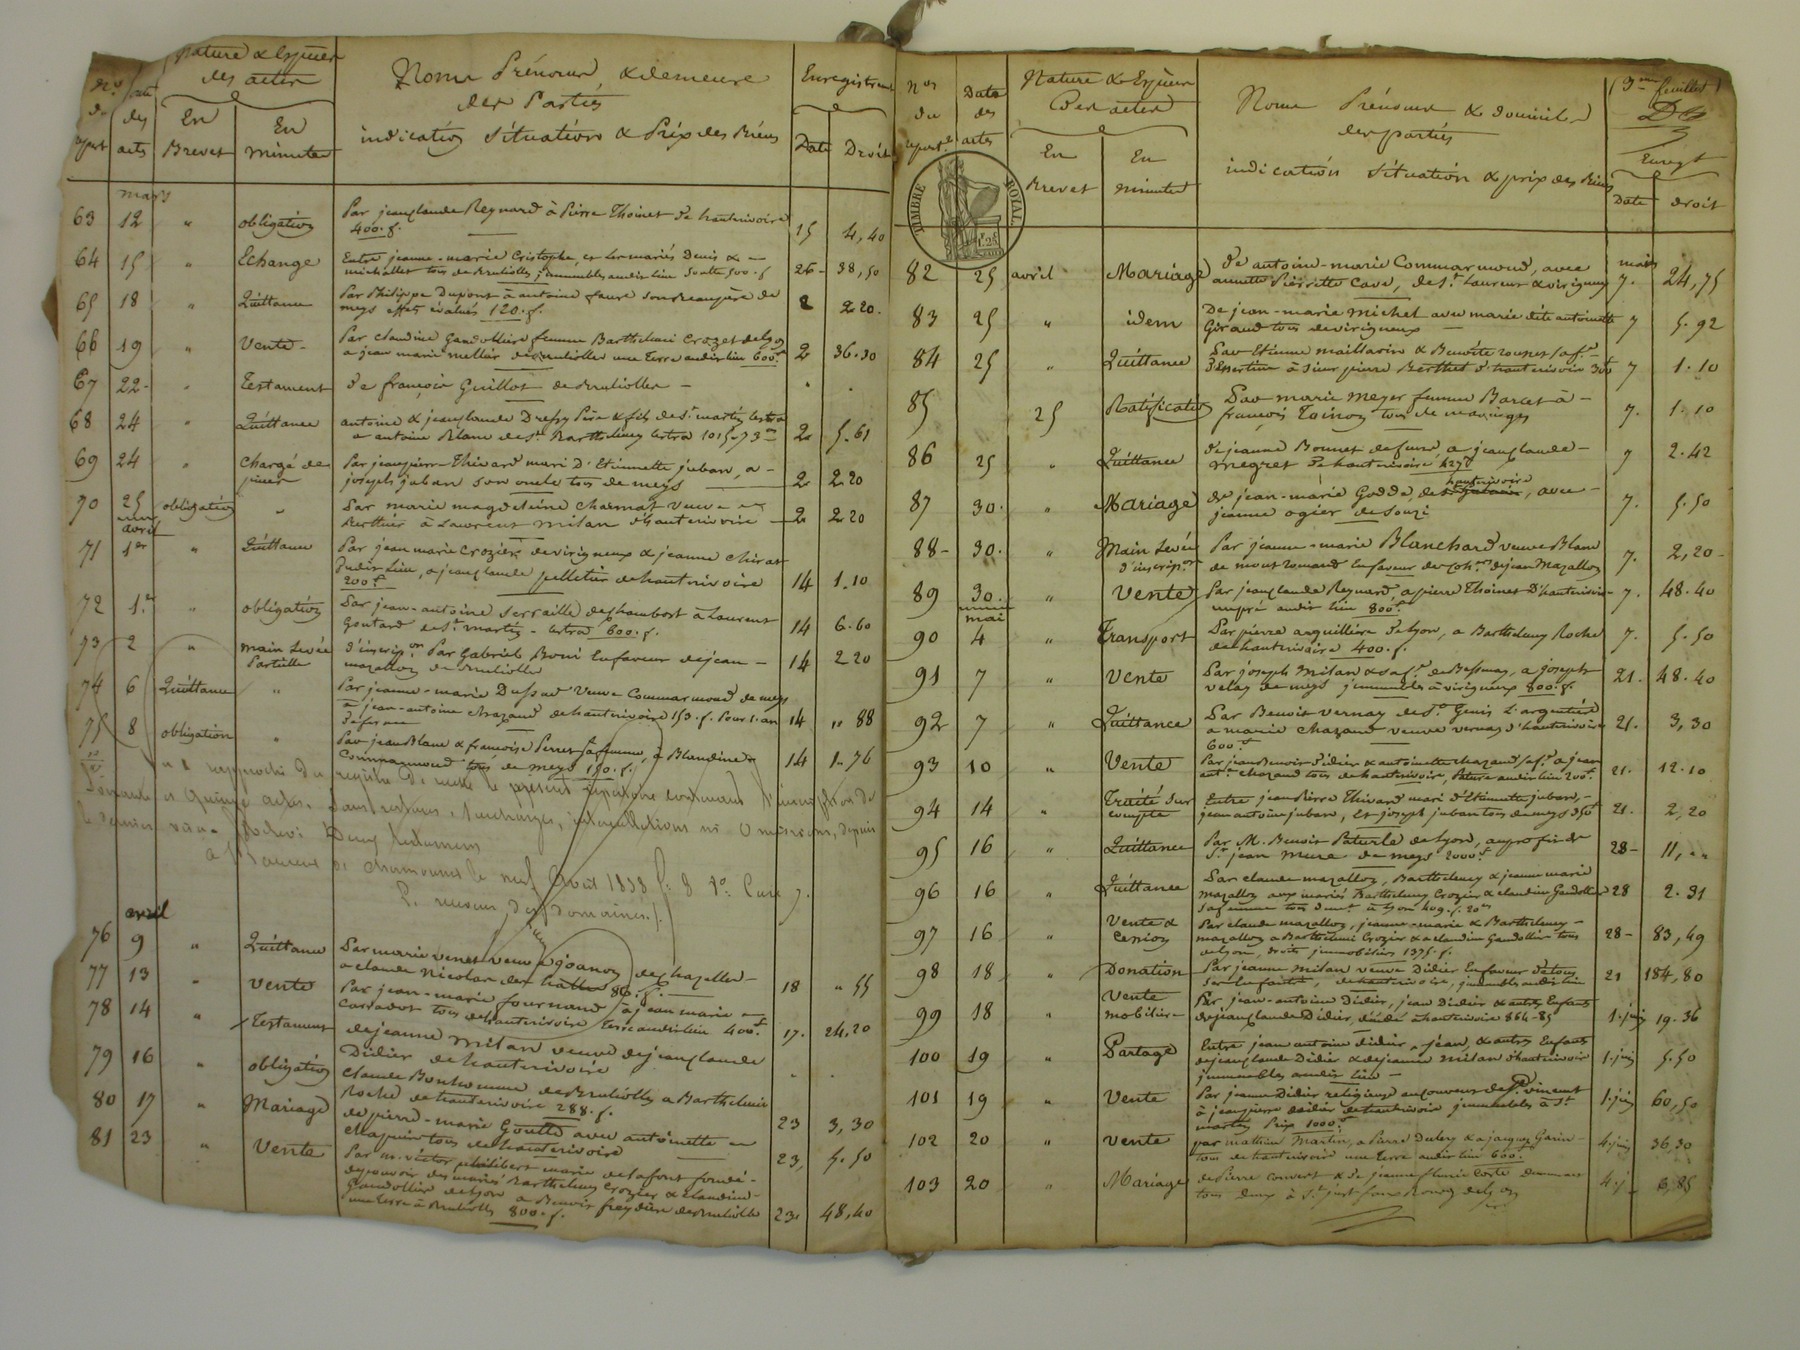 Nos du répert. Date des actes Nature & Espèces des actes En Brevet En Minute
Noms Prénoms & demeure
des Parties
indication Situation & Prix des Biens
Enregistrement Date Droit
mars
63 12 " obligation Par jean claude Reynard à Pierre Thoinet d'hauterivoire 400. f. 15 4,40
64 15 " Echange Entre jeanne-marie Cristophe, et les mariés Denis &
michallet tous de Brullioles, immeubles audit lieu 26 38,50
65 18 " Quittance Par Philippe Dupont à antoine faure son beaupère de
meys effets évalués 120. f. 2 2 20.
66 19 " Vente Par claudine Gandollière femme Barthelemi Crozet de Lyon
a jean marie mellier de Brullioles une terre audit lieu 600 f 2 36.30
67 22 " Testament de françois Guillot de Brullioles
68 24 " Quittance antoine & jean claude Dressy Père & fils de St martin lestra
a antoine Blanc de St Barthelemy lestra 1015-73 2 5.61
69 24 " chargé de pièces Par jean pierre Thivard mari d'Etiennette juban, a
joseph juban son oncle tous de meys 2 2 20
70 25 obligation " Par marie magdeleine charmat veuve
Berthier à Laurent milan d'hauterivoire 2 2 20
avril
71 1er " Quittance Par jean marie Crozier de virigneux & jeanne chirat
dudit lieu, a jean claude pelletier de hauterivoire
200 f 14 1.10
72 1er " obligation Par jean-antoine Serraille de chambost à Laurent
Goutard de St martin-lestra 600. f. 14 6.60
73 2 " main Levée Partielle d'inscripon Par Gabriel Boni En faveur de jean
mazallon de Brullioles 14 2 20
74 6 Quittance " Par jeanne-marie Dussud Veuve Commarmond de meys
à jean-antoine chazaud de hauterivoire 153. f. Pour 1. an
de ferme 14 " 88
75 8 obligation " Par jean Blanc & françoise Perret sa femme, à Blandine
Commarmond tous de meys 150. f. 14 1.76
rapproché du registre de recette le présent répertoire contenant l'inscription de
Soixante et quinze actes, Sans ratures, Surcharges, intercallations ni omissions, depuis
le dernier visa
Deux testamens
à St Laurent de chamousset le neuf Août 1838 f. 8 Vo Case 7.
Le receveur des domaines.
avril
76 9 " Quittance Par marie venet veuve joanon de chazelles
a claude Nicolas des halles 80. f. 18 " 55
77 13 " Vente Par jean-marie fournand à jean marie
Corradot tous de hauterivoire terre audit lieu 400 f 17. 24.20
78 14 " Testament de jeanne milan veuve de jean claude
Didier de hauterivoire
79 16 " obligation Claude Bonhomme de Brullioles a Barthelemi
Roche de hauterivoire 288. f. 23 3,30
80 17 " Mariage de pierre-marie Goutte avec antoinette
Chapuis tous de hauterivoire 23, 5.50
81 23 " Vente Par m. victor philibert marie de lafont fondé
de pouvoir des mariés Barthelemy Crozier & Claudine
Gandollière de Lyon a Benoit freydière de Brullioles
une terre à Brullioles 800. f. 23. 48,40
Nos du répert. Date des actes Nature & Espèces des actes En Brevet En minute
Noms Prénoms & domicile
des parties
indication Situation & prix des Biens
(3me feuillet)
Enregt Date droit
TIMBRE ROYAL
82 25 avril Mariage de antoine-marie Commarmond, avec
annette Pierrette Cave, de St Laurent & virigneux mai 7. 24,75
83 25 " idem De jean-marie michel avec marie dite antoinette
Giraud tous de virigneux 7 5.92
84 25 " Quittance Par Etienne maillavin & Benoite rousset sa fe
d'Essertine à sieur pierre Berthet d'hauterivoire 300 f 7 1.10
85 25 Ratification Par marie Meyer femme Barcet à
françois Toinon tous de maringes 7. 1.10
86 25 " Quittance de jeanne Bonnet de feurs, a jean claude
megret d'hauterivoire 427 f 7 2.42
87 30. " Mariage de jean-marie Godde, de hauterivoire, avec
jeanne ogier de Souzi 7. 5.50
88 30. " Main Levée d'inscripon Par jeanne-marie Blanchard veuve Blanc
de mont romand En faveur de jean Mazallon 7. 2,20
89 30. " Vente Par jean claude Reynard, a pierre Thoinet d'hauterivoire
un pré audit lieu 800 f 7. 48.40
mai
90 4 " Transport Par pierre anguillière de Lyon, a Barthelemy Roche
de hauterivoire 400. f. 7. 5.50
91 7 " Vente Par joseph Milan & sa fe de Bessenay, a joseph
velay de meys immeubles à virigneux 800. f. 21. 48.40
92 7 " Quittance Par Benoit vernay de St Genis L'argentière
a marie Chazaud veuve vernay d'hauterivoire
600 f 21. 3,30
93 10 " Vente Par jean Benoit Didier & antoinette chazaud sa fe a jean
ant. chazaud tous de hauterivoire, Pature audit lieu 200 f 21. 12.10
94 14 " Traité sur compte Entre jean Pierre Thivard mari d'Etiennette juban,
jean antoine juban, et joseph juban tous de meys 350 f 21. 2,20
95 16 " Quittance Par M. Benoit Paturle de Lyon, au profit de
Sr jean Mure de meys 2000 f 28 11, "
96 16 " Quittance Par claude mazallon, Barthelemy & jeanne marie
mazallon aux mariés Barthelemy Crozier & claudine Gandollière
sa femme tous demt à Lyon 409. f. 20 28 2.31
97 16 " Vente & Cession Par claude mazallon, jeanne-marie & Barthelemy
mazallon a Barthelemi Crozier & a claudine Gandollière tous
de Lyon, droits immobiliers 1375. f. 28 83,49
98 18 " Donation Par jeanne milan veuve Didier En faveur de tous
ses Enfants, de hauterivoire, immeubles audit lieu 21 184,80
99 18 " Vente mobilière Par jean-antoine Didier, jean Didier & autres Enfants
de jean claude Didier, décédé à hauterivoire 864-85 1. juin 19.36
100 19 " Partage Entre jean antoine didier, jean, & autres Enfants
de jean claude Didier & de jeanne Milan d'hauterivoire
immeubles audit lieu 1. juin 5.50
101 19 " Vente Par jeanne Didier religieuse au couvent de St vincent
à jean pierre didier de hauterivoire immeubles à St
martin Prix 1000 f 1. juin 60,50
102 20 " Vente par mathieu Martin, a Pierre Dulery & a jacques Garin
tous de hauterivoire une Terre audit lieu 600. f 4. juin 36,30
103 20 " Mariage de Pierre convert & de jeanne fleurie Corte demeurant
tous deux à St just faux bourg de Lyon 4. j. 6,85